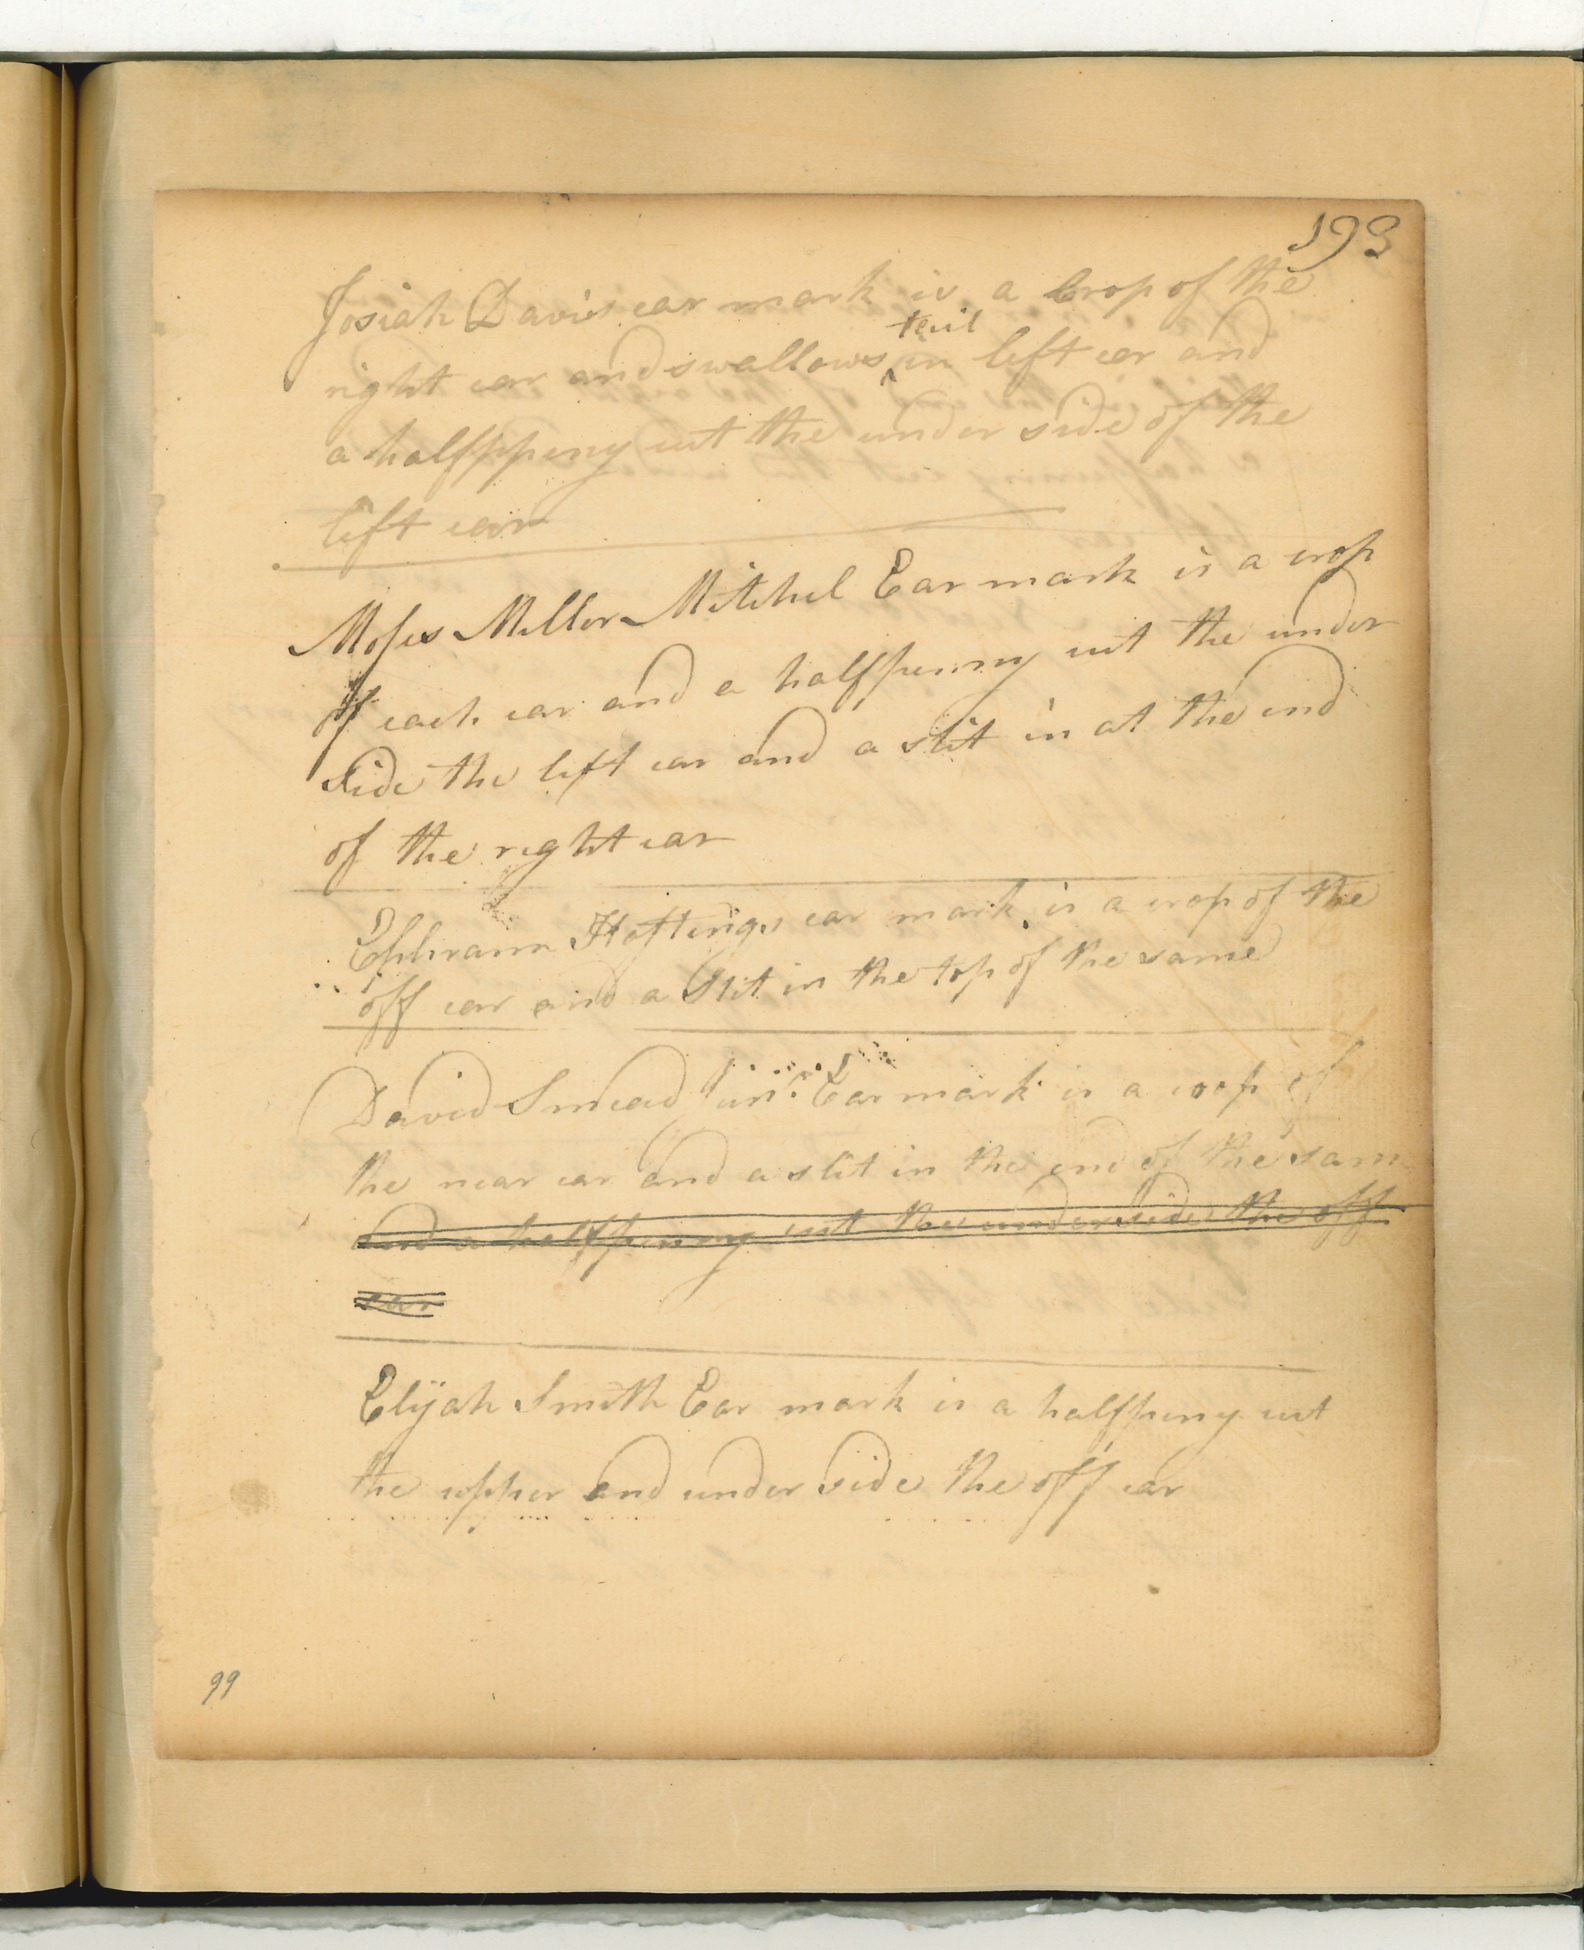 193
Josiah Davis ear mark is a Crop of the
tail
right ear and swallows in left ear and
a halfppeny cut the under side of the
left ear
Moses Miller Mitchel Ear mark is a crop
of each ear and a halfpenny cut the under
side the left ear and a slit in at the end
of the right ear
Ephraim Hastings ear mark is a crop of the
off ear and a Slit in the top of the same
David Smead Jun.r Ear mark is a croop of
the near ear and a slit in the end of the sam
and a halfpenny cut the under side the off
ear
Elijah Smith Ear mark is a halfpeny cut
the upper and under side the off ear
99